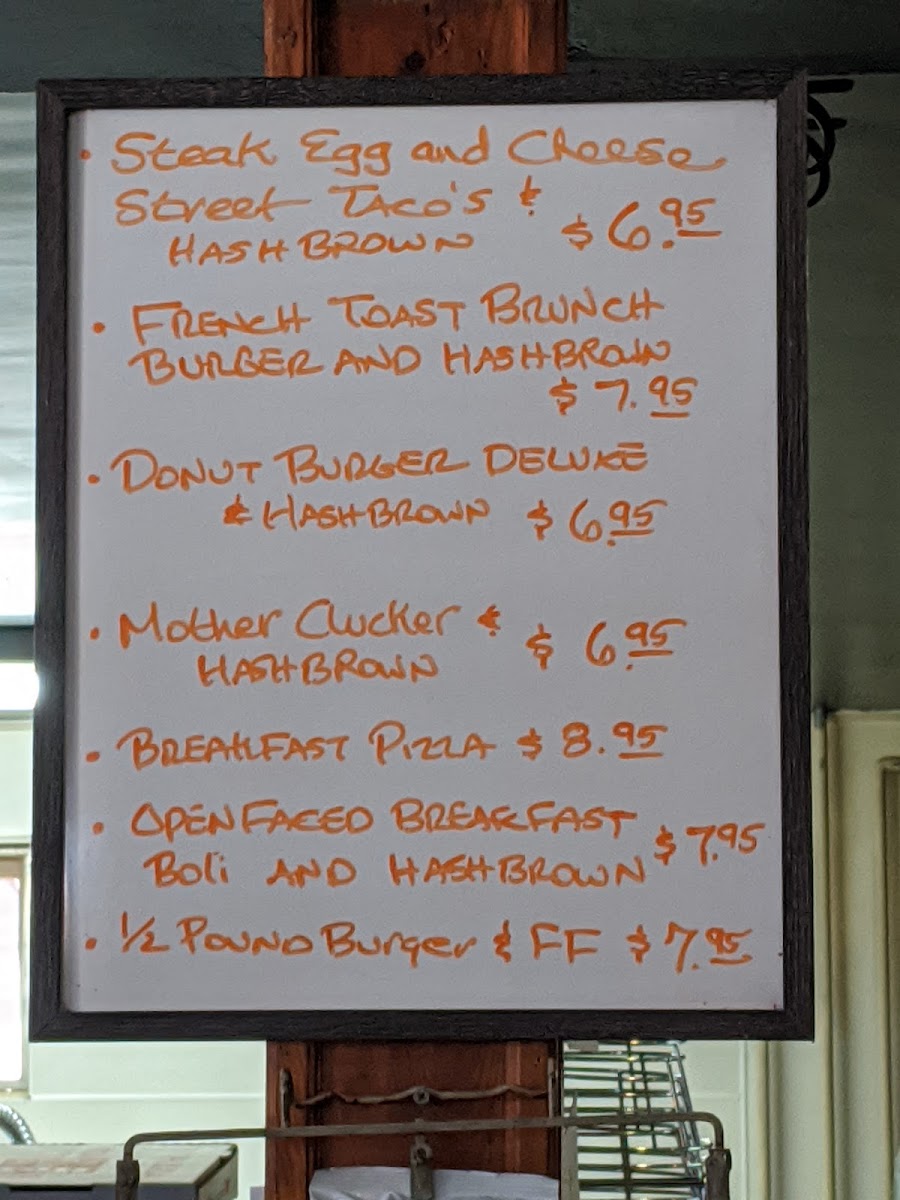 • Steak Egg and Cheese
Street Taco's &
HASHBROWN $6.95
• FRENCH TOAST BRUNCH
BURGER AND HASHBROWN
$7.95
• DONUT BURGER DELUXE
& HASHBROWN $6.95
• Mother Clucker &
HASHBROWN $6.95
• BREAKFAST PIZZA $8.95
• OPEN FACED BREAKFAST
Boli AND HASHBROWN $7.95
• 1/2 POUND Burger & FF $7.95